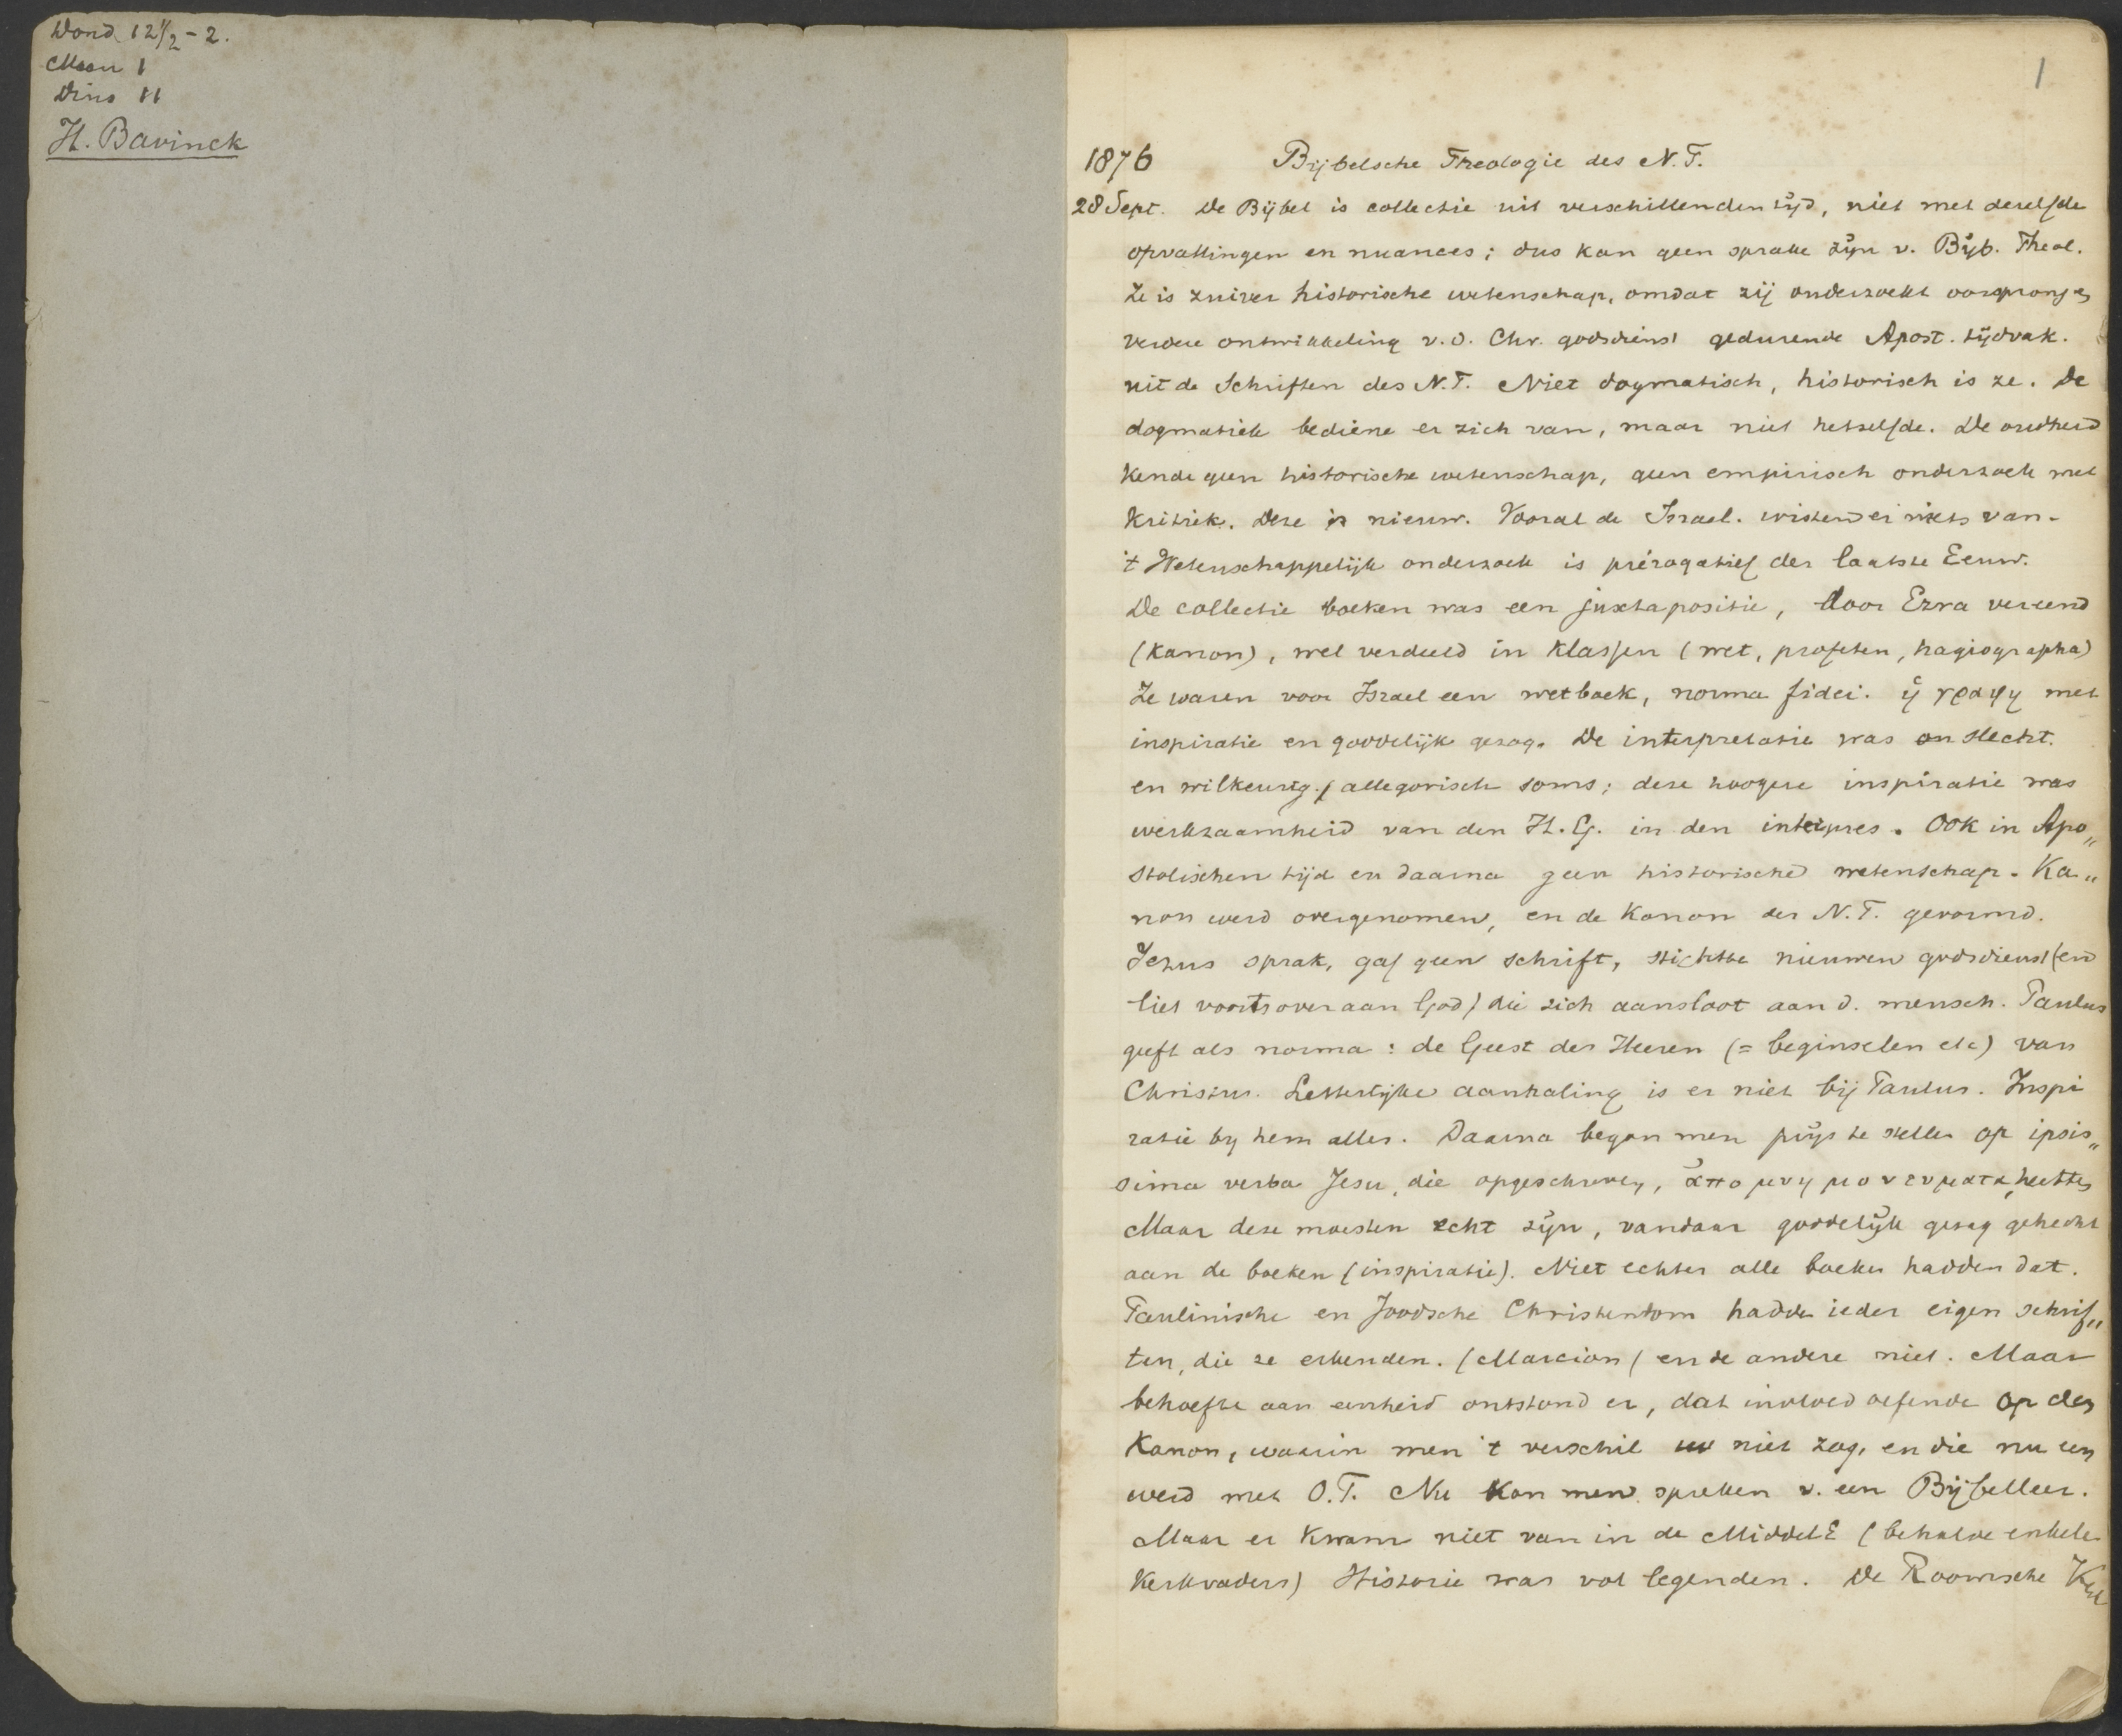 Wond 12 1/2 - 2.
Maan 1
Dins 11
H. Bavinck
1
1876 Bijbelsche Theologie des N.T.
28 Sept. De Bijbel is collectie uit verschillenden tijd, niet met derzelfde
opvattingen en nuances; dus kan geen sprake zijn v. Bijb. Theol.
Ze is zuiver historische wetenschap, omdat zij onderzoekt oorsprong en
verdere ontwikkeling v.d. Chr. godsdienst gedurende Apost. tijdvak.
uit de Schriften des N.T. Niet dogmatisch, historisch is ze. De
dogmatiek bediene er zich van, maar niet hetzelfde. De oudheid
kende geen historische wetenschap, geen empirisch onderzoek met
kritiek. Deze is nieuw. Vooral de Israel. wisten er niets van.
't Wetenschappelijk onderzoek is prérogatief der laatste Eeuw.
De collectie boeken was een juxtapositie, door Ezra vereend
(Kanon), wel verdeeld in klassen (wet, profeten, hagiographa)
Ze waren voor Israel een wetboek, norma fidei. ἡ γραφη met
inspiratie en goddelijk gezag. De interpretatie was slecht.
en wilkeurig, allegorisch soms; deze hoogere inspiratie was
werkzaamheid van den H.G. in den interpres. Ook in Apo„
stolischen tijd en daarna geen historische wetenschap. Ka„
non werd overgenomen, en de Kanon des N.T. gevormd.
Jezus sprak, gaf geen schrift, stichtte nieuwen godsdienst (en
liet voorts over aan God) die zich aansloot aan d. mensch. Paulus
geeft als norma: de Geest des Heeren (= beginselen etc) van
Christus. Letterlijke aanhaling is er niet bij Paulus. Inspi
ratie by hem alles. Daarna began men prijs te stellen op ipsis„
sima verba Jesu, die opgeschreven, ἀπομνημονευματα, heetten
Maar deze moesten echt zijn, vandaar goddelijk gezag gehecht
aan de boeken (inspiratie). Niet echter alle boeken hadden dat.
Paulinische en Joodsche Christendom hadden ieder eigen schrif„
ten, die ze erkenden. (Marcion) en de andere niet. Maar
behoefte aan eenheid ontstond er, dat invloed oefende op den
Kanon, waarin men 't verschil niet zag, en die nu een
werd met O.T. Nu kon men spreken v. een Bijbelleer.
Maar er kwam niet van in de MiddelE (behalve enkele
Kerkvaders) Historie was vol legenden. De Roomsche Kerk